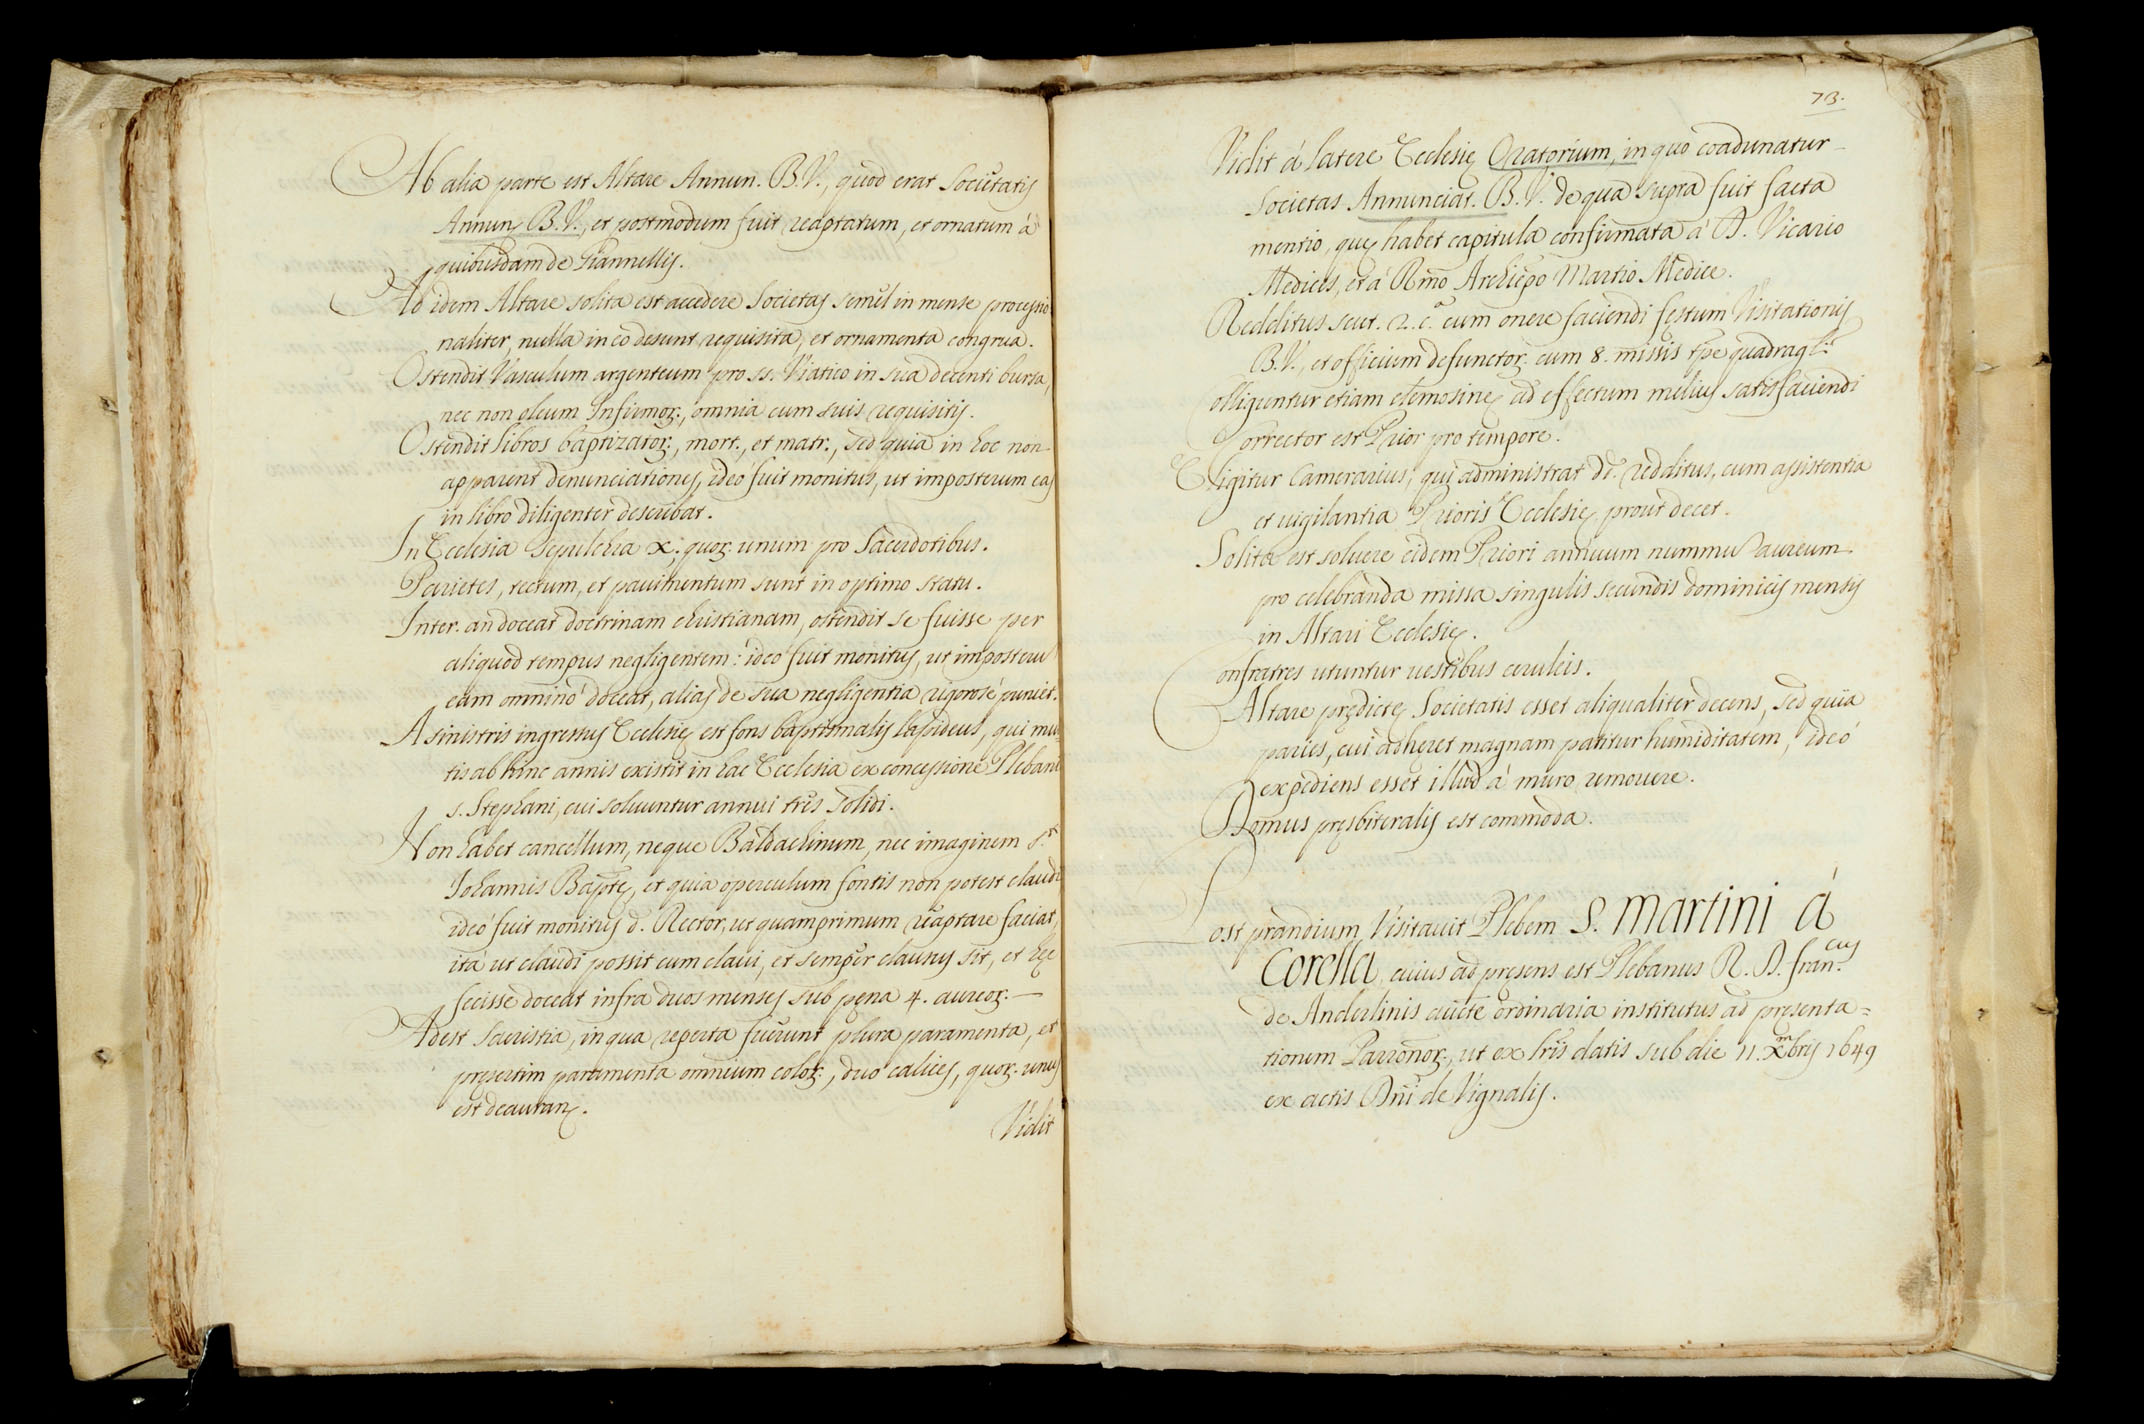 Ab alia parte est Altare Annun. B.V., quod erat Societatis
Annunᶒ B.V., et postmodum fuit reaptatum, et ornatum á
quibusdam de Giannellis.
Ad idem Altare solita est accedere Societas semel in mense processio
naliter, nulla in eo desunt requisita, et ornamenta congrua.
Ostendit Vasculum argenteum pro ss. Viatico in sua decenti bursa,
nec non oleum Infirmoꝝ, omnia cum suis requisitis.
Ostendit libros baptizatoꝝ, mort., et matr., sed quia in hoc non
apparent denunciationes, ideó fuit monitus, ut imposterum eas
in libro diligenter describat.
In Ecclesia sepulchra x. quoꝝ unum pro Sacerdotibus.
Parietes, tectum, et pauimentum sunt in optimo statu.
Inter. an doceat doctrinam christianam, ostendit se fuisse per
aliquod tempus negligentem: ideo fuit monitus, ut imposterũ
eam omninó doceat, alias de sua negligentia rigorosé puniet.
A sinistris ingressus Ecclesię est fons baptismalis lapideus, qui mul
tis ab hinc annis existit in hac Ecclesia ex concessione Plebani
s. Stephani, cui soluuntur annui tres solidi.
Non habet cancellum, neque Baldachinum, nec imaginem S.ti
Iohannis Bapt̃ę, et quia operculum fontis non potest claudi
ideó fuit monitus d. Rector, ut quamprimum reaptare faciat,
ita ut claudi possit cum claui, et semper clausus sit, et hęc
fecisse doceat infra duos menses sub pena 4. aureoꝝ. —
Adest Sacristia, in qua reperta fuerunt plura paramenta, et
pręsertim paramenta omnium coloꝝ, duo calices, quoꝝ unus
est deauratus.
Vidit
73.
Vidit á latere Ecclesię Oratorium, in quo coadunatur
Societas Annunciat. B.V. de qua supra fuit facta
mentio, quę habet capitula confirmata á D. Vicario
Medices, et á Rm̃o Archiepõ Martio Medice.
Redditus scut. 2. c.ª cum onere faciendi festum Visitationis
B.V., et officium defunctoꝝ cum 8. missis tp̃e quadragl.i
Colliguntur etiam elemosinę ad effectum melius satisfaciendi
Corrector est Prior pro tempore.
Eligitur Camerarius, qui administrat dẽ. redditus, cum assistentia
et uigilantia Prioris Ecclesię prout decet.
Solita est soluere eidem Priori annuum nummũ aureum
pro celebranda missa singulis secundis dominicis mensis
in Altari Ecclesię.
Confratres utuntur uestibus ceruleis.
Altare pręedictę Societatis esset aliqualiter decens, sed quia
paries, cui adheret magnam patitur humiditatem, ideó
expediens esset illud á muro remouere.
Domus pręsbiteralis est commoda.
Post prandium Visitauit Plebem S. Martini á
Corella, cuius ad pręsens est Plebanus R. D. Fran.cus
de Anderlinis aucte ordinaria institutus ad presenta=
tionem Patronoꝝ, ut ex lr̃is datis sub die 11. Xm̃bris 1649
ex actis Dn̄i de Vignalis.